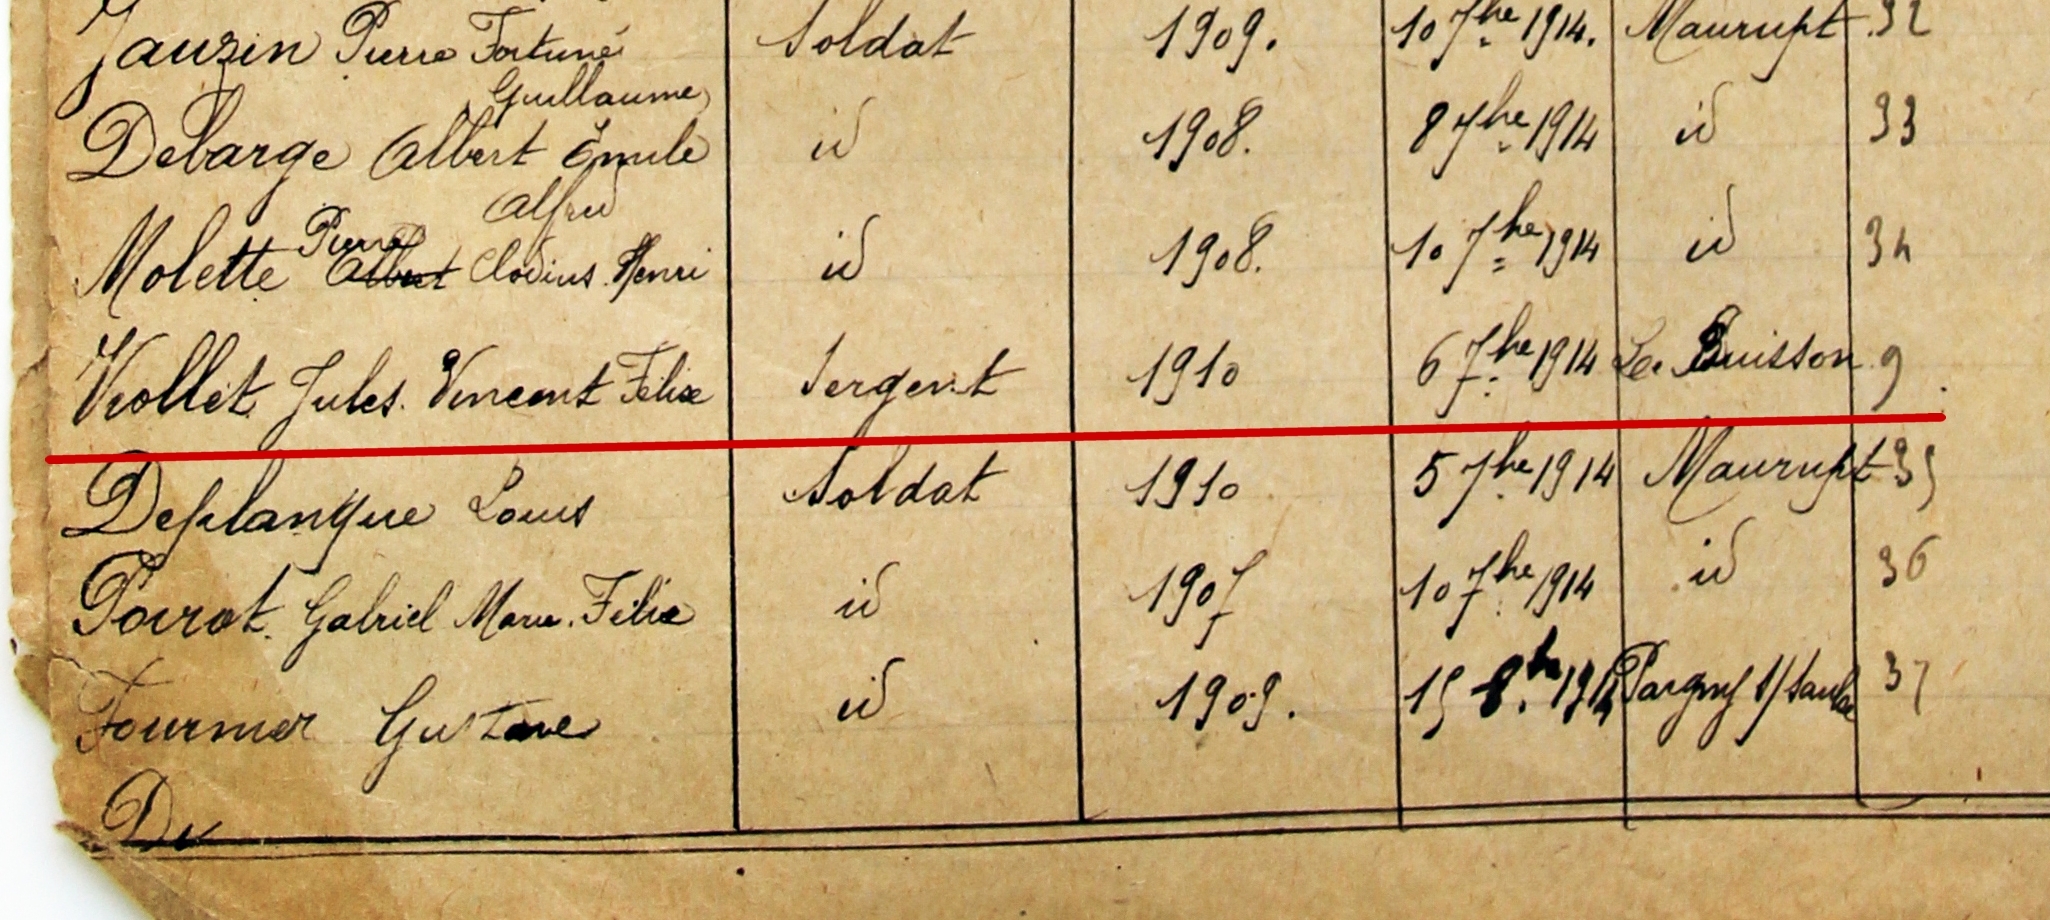 Jauzin Pierre Fortuné Soldat 1909. 10 7bre 1914. Maurupt 32
Guillaume
Debarge Albert Émile id 1908. 8 7bre 1914 id 33
Alfred
Pierre
Molette Albert Clodius Henri id 1908. 10 7bre 1914 id 34
Viollet Jules Vincent Félix Sergent 1910 6 7bre 1914 Le Buisson 9
Deplanque Louis Soldat 1910 5 7bre 1914 Maurupt 35
Poirot Gabriel Marie Félix id 1907 10 7bre 1914 id 36
Fournier Gustave id 1909. 15 8bre 1914 Pargny s/ Saulx 37